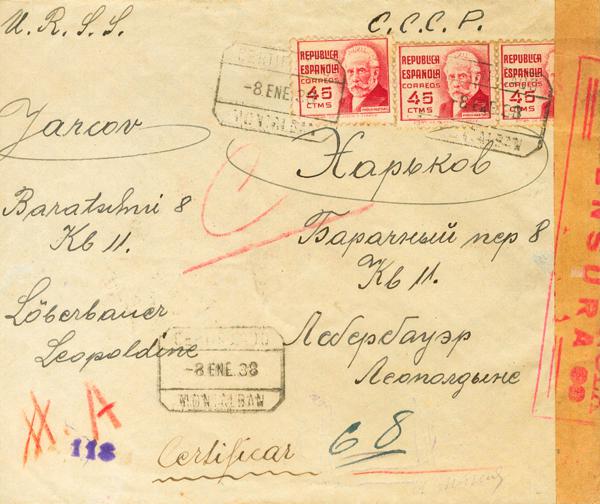 U.R.S.S.
C.C.C.P.
REPUBLICA
ESPAÑOLA
CORREOS
45
CTMS
REPUBLICA
ESPAÑOLA
CORREOS
45
CTMS
REPUBLICA
ESPAÑOLA
CORREOS
45
CTMS
-8 ENE. 38
MONTALBAN
Jarcov
Харьков
Baratschni 8
Kb 11.
Барачный пер 8
Кв 11.
Löberbauer
Leopoldine
Лебербауэр
Леополдыне
CERTIFICADO
-8 ENE. 38
MONTALBAN
CENSURA
M.A
118
Certificar 68